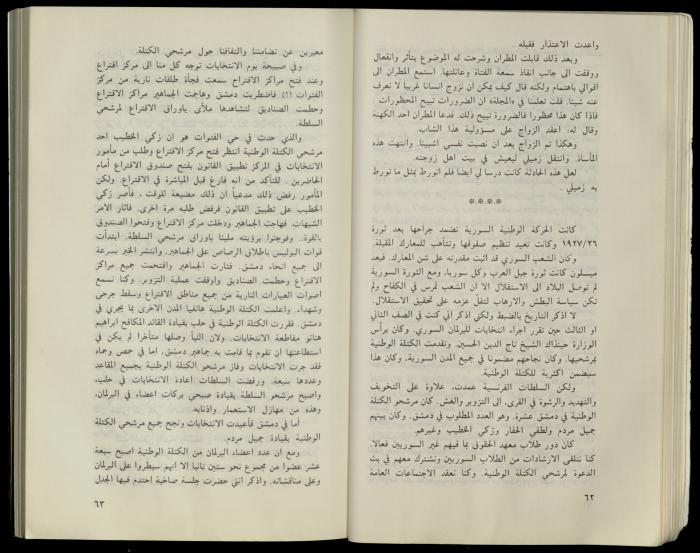 واعدت الاعتذار فقبله .
وبعد ذلك قابلت المطران وشرحت له الموضوع بتأثر وانفعال
ووقفت الى جانب انقاذ سمعة الفتاة وعائلتها. استمع المطران الى
اقوالي باهتمام ولكنه قال كيف يمكن ان نزوج انسانا غريبا لا نعرف
عنه شيئا. قلت تعلمنا في «المجلة» ان الضرورات تبيح المحظورات
فاذا كان هذا محظورا فالضرورة تبيح ذلك. فدعا المطران احد الكهنة
وقال له: اعقد الزواج على مسؤولية هذا الشاب.
وهكذا تم الزواج بعد ان نصبت نفسي اشبينا. وانتهت هذه
المأساة. وانتقل زميلي ليعيش في بيت اهل زوجته.
لعل هذه الحادثة كانت درسا لي ايضا فلم اتورط بمثل ما تورط
به زميلي.
* * * *
كانت الحركة الوطنية السورية تضمد جراحها بعد ثورة
١٩٢٧/٢٦ وكانت تعيد تنظيم صفوفها وتتأهب للمعارك المقبلة.
وكان الشعب السوري قد اثبت مقدرته على شن المعارك. فبعد
ميسلون كانت ثورة جبل العرب وكل سوريا. ومع الثورة السورية
لم توصل البلاد الى الاستقلال الا ان الشعب تمرس في الكفاح ولم
تكن سياسة البطش والارهاب لتفل عزمه على تحقيق الاستقلال.
لا اذكر التاريخ بالضبط ولكني اذكر اني كنت في الصف الثاني
او الثالث حين تقرر اجراء انتخابات للبرلمان السوري. وكان يرأس
الوزارة حينذاك الشيخ تاج الدين الحسين. وتقدمت الكتلة الوطنية
بمرشحيها. وكان نجاحهم مضمونا في جميع المدن السورية. وكان هذا
سيضمن اكثرية للكتلة الوطنية.
ولكن السلطات الفرنسية عمدت، علاوة على التخويف
والتهديد والرشوة في القرى، الى التزوير والغش. كان مرشحو الكتلة
الوطنية في دمشق عشرة، وهو العدد المطلوب في دمشق. وكان بينهم
جميل مردم ولطفي الحفار وزكي الخطيب وغيرهم.
كان دور طلاب معهد الحقوق بما فيهم غير السوريين فعالا.
كنا نتلقى الارشادات من الطلاب السوريين ونشترك معهم في بث
الدعوة لمرشحي الكتلة الوطنية. وكنا نعقد الاجتماعات العامة
٦٢
معبرين عن تضامننا والتفافنا حول مرشحي الكتلة.
وفي صبيحة يوم الانتخابات توجه كل منا الى مركز اقتراع
وعند فتح مراكز الاقتراع سمعت فجأة طلقات نارية من مركز
القنوات (!) فاضطربت دمشق وهاجمت الجماهير مراكز الاقتراع
وحطمت الصناديق لتشاهدها ملأى باوراق الاقتراع لمرشحي
السلطة.
والذي حدث في حي القنوات هو ان زكي الخطيب احد
مرشحي الكتلة الوطنية انتظر فتح مركز الاقتراع وطلب من مأمور
الانتخابات في المركز تطبيق القانون بفتح صندوق الاقتراع أمام
الحاضرين . للتأكد من انه فارغ قبل المباشرة في الاقتراع. ولكن
المأمور رفض ذلك مدعياً ان ذلك مضيعة للوقت ، فأصر زكي
الخطيب على تطبيق القانون فرفض طلبه مرة اخرى. فاثار الامر
الشبهات. فهاجت الجماهير ودخلت مركز الاقتراع وفتحوا الصندوق
بالقوة.. وفوجئوا برؤيته مليئا باوراق مرشحي السلطة. ابتدأت
قوات البوليس باطلاق الرصاص على الجماهير. وانتشر الخبر بسرعة
الى جميع انحاء دمشق. فثارت الجماهير واقتحمت جميع مراكز
الاقتراع وحطمت الصناديق واوقفت عملية التزوير. وكنا نسمع
اصوات العيارات النارية من جميع مناطق الاقتراع وسقط جرحى
وشهداء. واعلمت الكتلة الوطنية هاتفيا المدن الاخرى بما يجري في
دمشق. فقررت الكتلة الوطنية في حلب بقيادة القائد المكافح ابراهيم
هنانو مقاطعة الانتخابات. ولان النبأ وصلها متأخرا لم يكن في
استطاعتها ان تقوم بما قامت به جماهير دمشق. اما في حمص وحماه
فقد جرت الانتخابات وفاز مرشحو الكتلة الوطنية بجميع المقاعد
وعددها سبعة. ورفضت السلطات اعادة الانتخابات في حلب،
واصبح مرشحو السلطة بقيادة صبحي بركات اعضاء في البرلمان،
وهذه من مهازل الاستعمار واذنابه.
أما في دمشق فأعيدت الانتخابات ونجح جميع مرشحي الكتلة
الوطنية بقيادة جميل مردم.
ومع ان عدد اعضاء البرلمان من الكتلة الوطنية اصبح سبعة
عشر عضوا من مجموع نحو ستين نائبا الا انهم سيطروا على البرلمان
وعلى مناقشاته. واذكر انني حضرت جلسة صاخبة احتدم فيها الجدل
٦٣